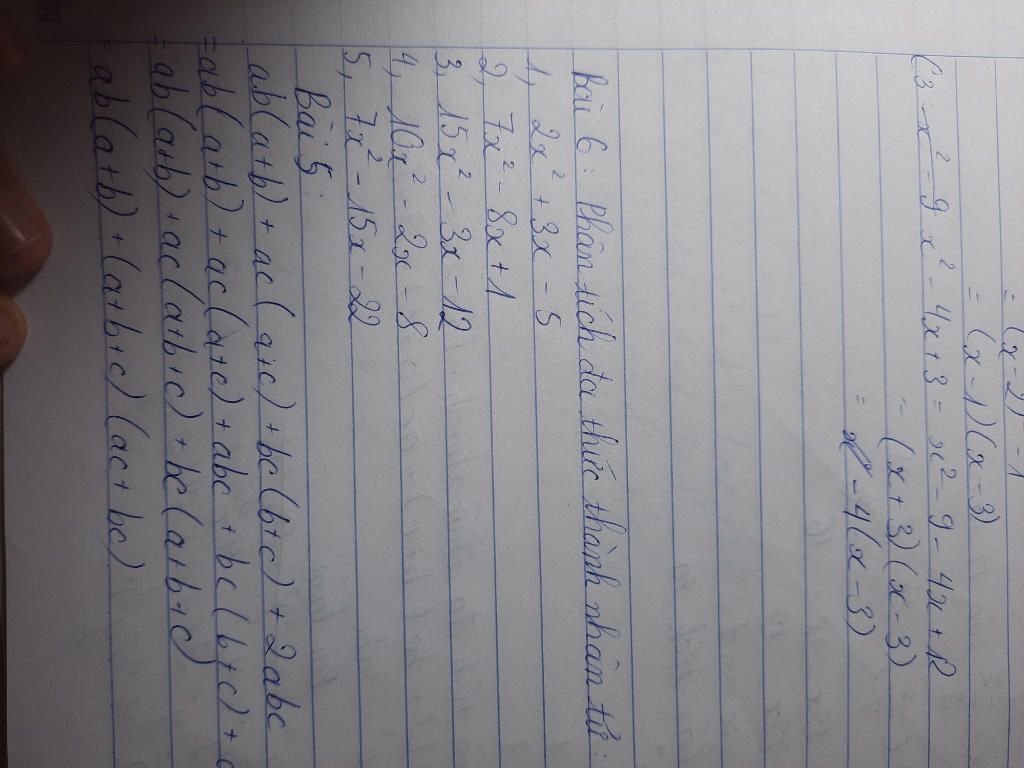 = (x-2)² - 1
= (x-1)(x-3)
C3 x² - 9 x² - 4x + 3 = x² - 9 - 4x + 12
= (x+3)(x-3)
= - 4(x-3)
Bài 6: Phân tích đa thức thành nhân tử:
1, 2x² + 3x - 5
2, 7x² - 8x + 1
3, 15x² - 3x - 12
4, 10x² - 2x - 8
5, 7x² - 15x - 22
Bài 5:
ab(a+b) + ac(a+c) + bc(b+c) + 2abc
= ab(a+b) + ac(a+c) + abc + bc(b+c) +
= ab(a+b) + ac(a+b+c) + bc(a+b+c)
= ab(a+b) + (a+b+c)(ac+bc)